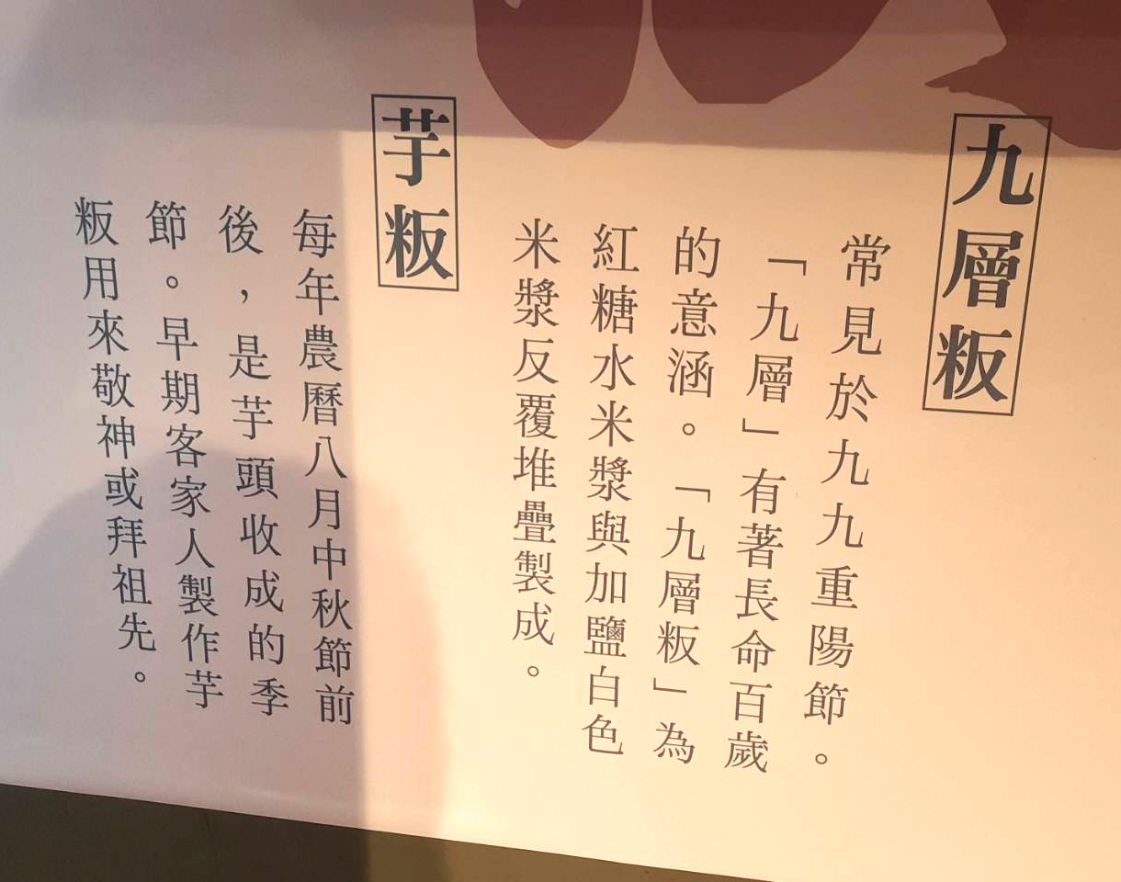 九層粄
常見於九九重陽節。
「九層」有著長命百歲
的意涵。「九層粄」為
紅糖水米漿與加鹽白色
米漿反覆堆疊製成。
芋粄
每年農曆八月中秋節前
後,是芋頭收成的季
節。早期客家人製作芋
粄用來敬神或拜祖先。